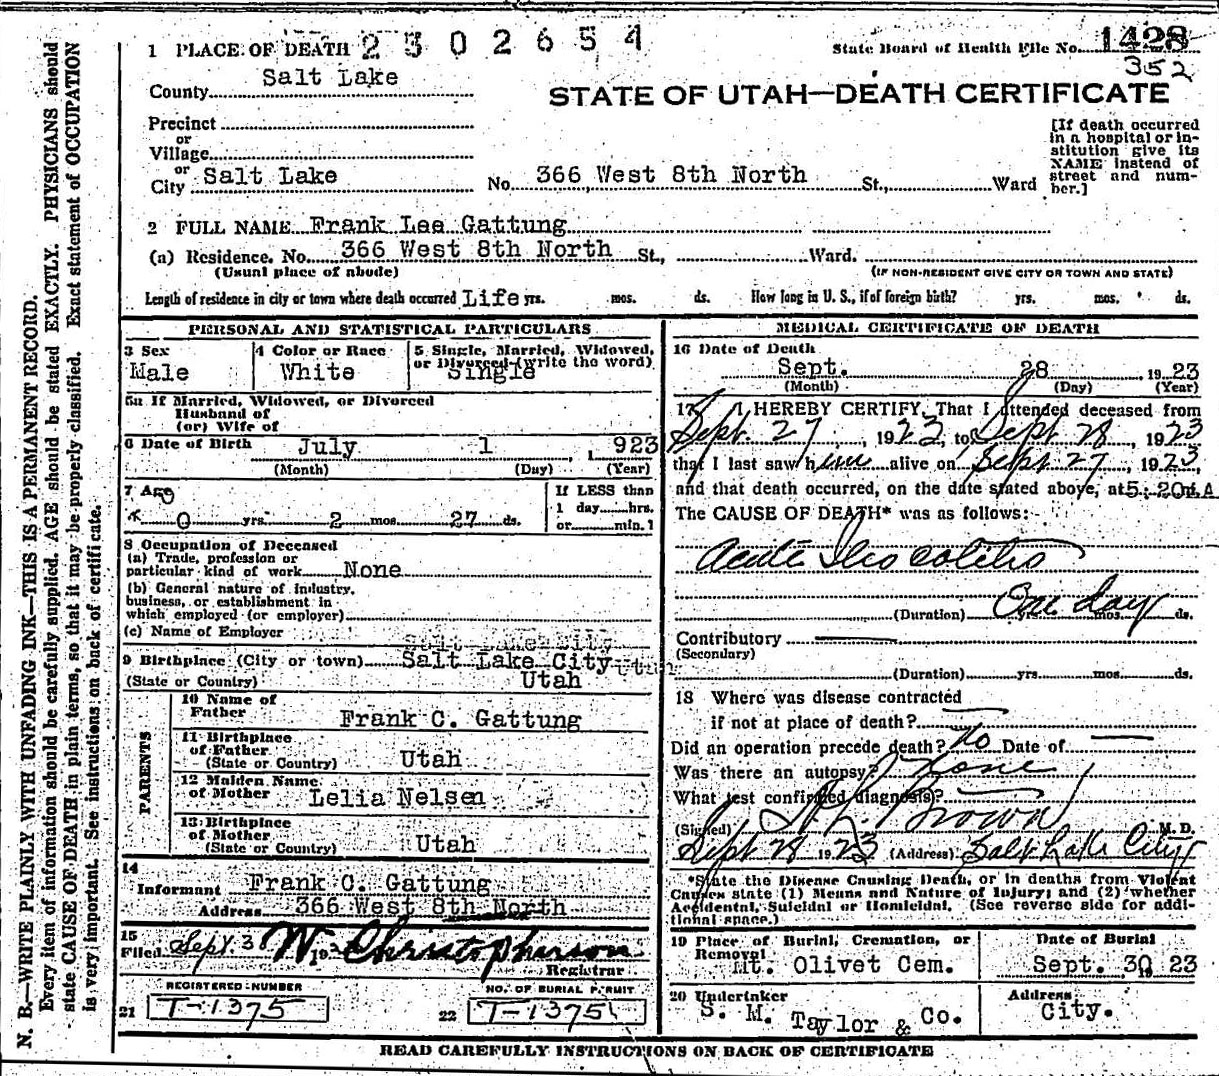 1 PLACE OF DEATH 2302654
State Board of Health File No. 1428
352
County Salt Lake
STATE OF UTAH—DEATH CERTIFICATE
Precinct
or
Village
or
City Salt Lake No. 366 West 8th North St., Ward
[If death occurred
in a hospital or in-
stitution give its
NAME instead of
street and num-
ber.]
2 FULL NAME Frank Lee Gattung
(a) Residence. No. 366 West 8th North St., Ward.
(Usual place of abode) (IF NON-RESIDENT GIVE CITY OR TOWN AND STATE)
Length of residence in city or town where death occurred Life yrs. mos. ds. How long in U. S., if of foreign birth? yrs. mos. ds.
PERSONAL AND STATISTICAL PARTICULARS
3 Sex 4 Color or Race 5 Single, Married, Widowed,
or Divorced (write the word)
Male White Single
5a If Married, Widowed, or Divorced
Husband of
(or) Wife of
6 Date of Birth July 1, 1923
(Month) (Day) (Year)
7 Age
0 yrs. 2 mos. 27 ds.
If LESS than
1 day hrs.
or min.?
8 Occupation of Deceased
(a) Trade, profession or
particular kind of work None
(b) General nature of industry,
business, or establishment in
which employed (or employer)
(c) Name of Employer
9 Birthplace (City or town) Salt Lake City
(State or Country) Utah
PARENTS
10 Name of
Father Frank C. Gattung
11 Birthplace
of Father
(State or Country) Utah
12 Maiden Name
of Mother Lelia Nelsen
13 Birthplace
of Mother
(State or Country) Utah
14
Informant Frank C. Gattung
Address 366 West 8th North
15
Filed Sept. W. Christopherson
Registrar
REGISTERED NUMBER NO. OF BURIAL PERMIT
21 T-1375 22 T-1375
MEDICAL CERTIFICATE OF DEATH
16 Date of Death
Sept. 28 1923
(Month) (Day) (Year)
17 I HEREBY CERTIFY, That I attended deceased from
Sept. 27, 1923, to Sept 28, 1923
that I last saw him alive on Sept 27, 1923,
and that death occurred, on the date stated above, at 5:20m.A
The CAUSE OF DEATH* was as follows:
Acute Ileo colitis
(Duration) One day yrs. mos. ds.
Contributory
(Secondary)
(Duration) yrs. mos. ds.
18 Where was disease contracted
if not at place of death?
Did an operation precede death? No Date of
Was there an autopsy? None
What test confirmed diagnosis?
(Signed) Brown M.D.
Sept 28 1923 (Address) Salt Lake City
*State the Disease Causing Death, or in deaths from Violent
Causes state (1) Means and Nature of Injury; and (2) whether
Accidental, Suicidal or Homicidal. (See reverse side for addi-
tional space.)
19 Place of Burial, Cremation, or
Removal Date of Burial
Mt. Olivet Cem. Sept. 30, 23
20 Undertaker Address
S. M. Taylor & Co. City.
READ CAREFULLY INSTRUCTIONS ON BACK OF CERTIFICATE
N. B.—WRITE PLAINLY WITH UNFADING INK—THIS IS A PERMANENT RECORD.
Every item of information should be carefully supplied. AGE should be stated EXACTLY. PHYSICIANS should
state CAUSE OF DEATH in plain terms, so that it may be properly classified. Exact statement of OCCUPATION
is very important. See instructions on back of certificate.